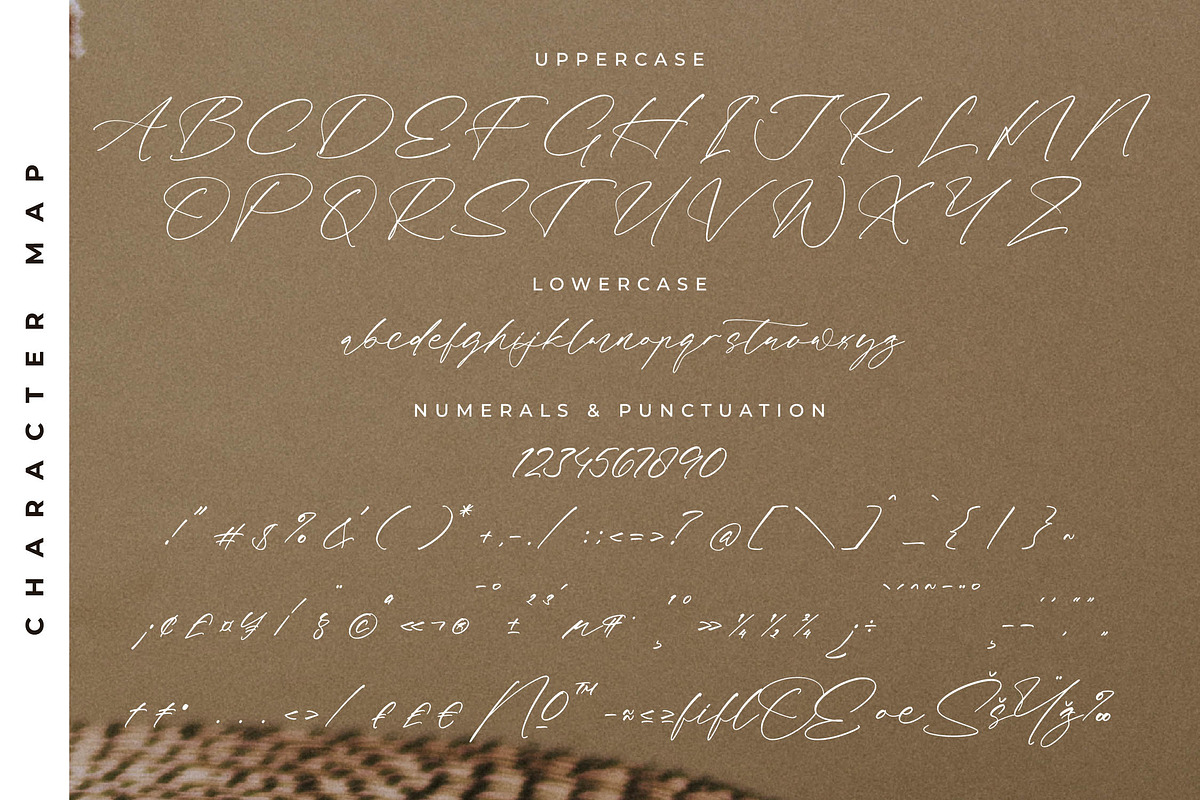 CHARACTER MAP
UPPERCASE
ABCDEFGHIJKLMN
OPQRSTUVWXYZ
LOWERCASE
abcdefghijklmnopqrstuvwxyz
NUMERALS & PUNCTUATION
1234567890
!"#$%&'()*+,-./:;<=>?@[\]^_`{|}~
¡¢£¤¥¦§¨©ª«¬®¯°±²³´µ¶·¸¹º»¼½¾¿÷
†‡•...‹›⁄₤£€№™−≈≤≥fiflŒœŠšŸž‰